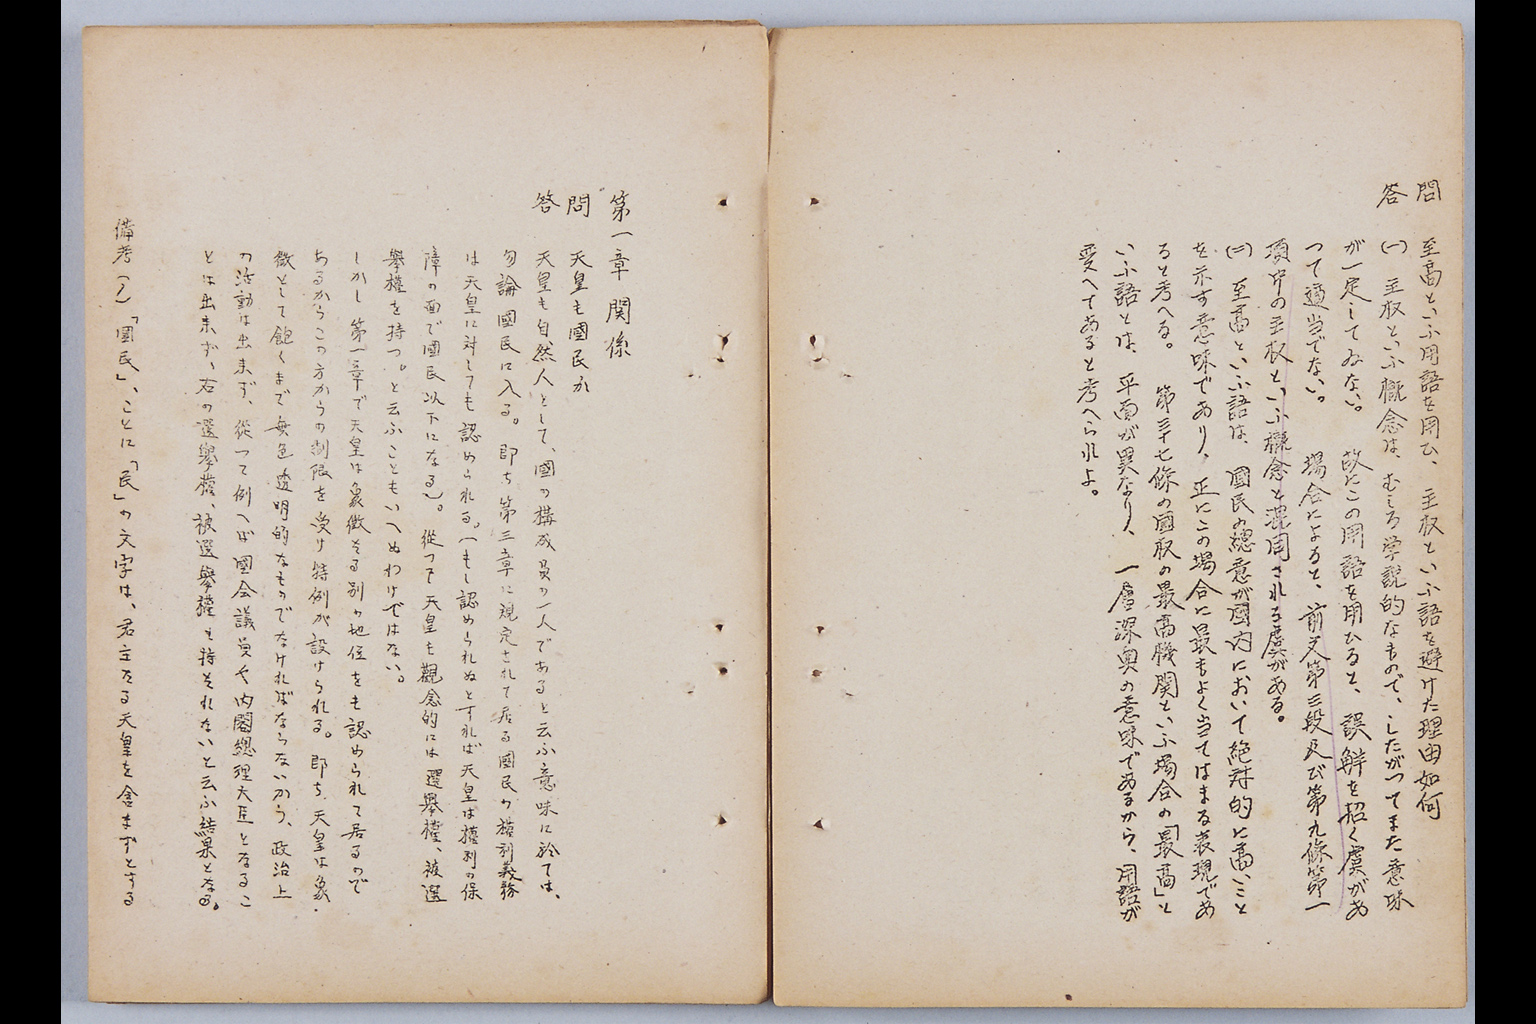 問　至高といふ用語を用ひ、主权といふ語を避けた理由如何
答　(一)　主权といふ概念は、むしろ学説的なもので、したがつてまた意味
が一定してゐない。　故にこの用語を用ひると、誤解を招く虞があ
つて適当でない。　場合によると、前文第三段及び第九條第一
項中の主权といふ概念と混同される虞がある。
(二)　至高といふ語は、國民の總意が國内において絶対的に高いこと
を示す意味であり、正にこの場合に最もよく当てはまる表現であ
ると考へる。　第三十七條の國权の最高機関といふ場合の「最高」と
いふ語とは、平面が異なり、一層深奥の意味であるから、用語が
変へてあると考へられよ。
第一章　関係
問　天皇も國民か
答　天皇も自然人として、國の構成員の一人であると云ふ意味に於ては、
勿論國民に入る。即ち第三章に規定されて居る國民の權利義務
は天皇に対しても認められる。(もし認められぬとすれば天皇は權利の保
障の面で國民以下になる)。從つて天皇も觀念的には選擧權、被選
擧權を持つ。と云ふこともいへぬわけではない。
しかし第一章で天皇は象徴たる別の地位をも認められて居るので
あるからこの方からの制限を受け特例が設けられる。即ち天皇は象
徴として飽くまで無色透明的なものでなければならないから、政治上
の活動は出来ず、從つて例へば國会議員や内閣總理大臣となるこ
とは出来ず、右の選擧權、被選擧權も持たれないと云ふ結果となる。
備考(一)「國民」、ことに「民」の文字は、君主たる天皇を含まずとする